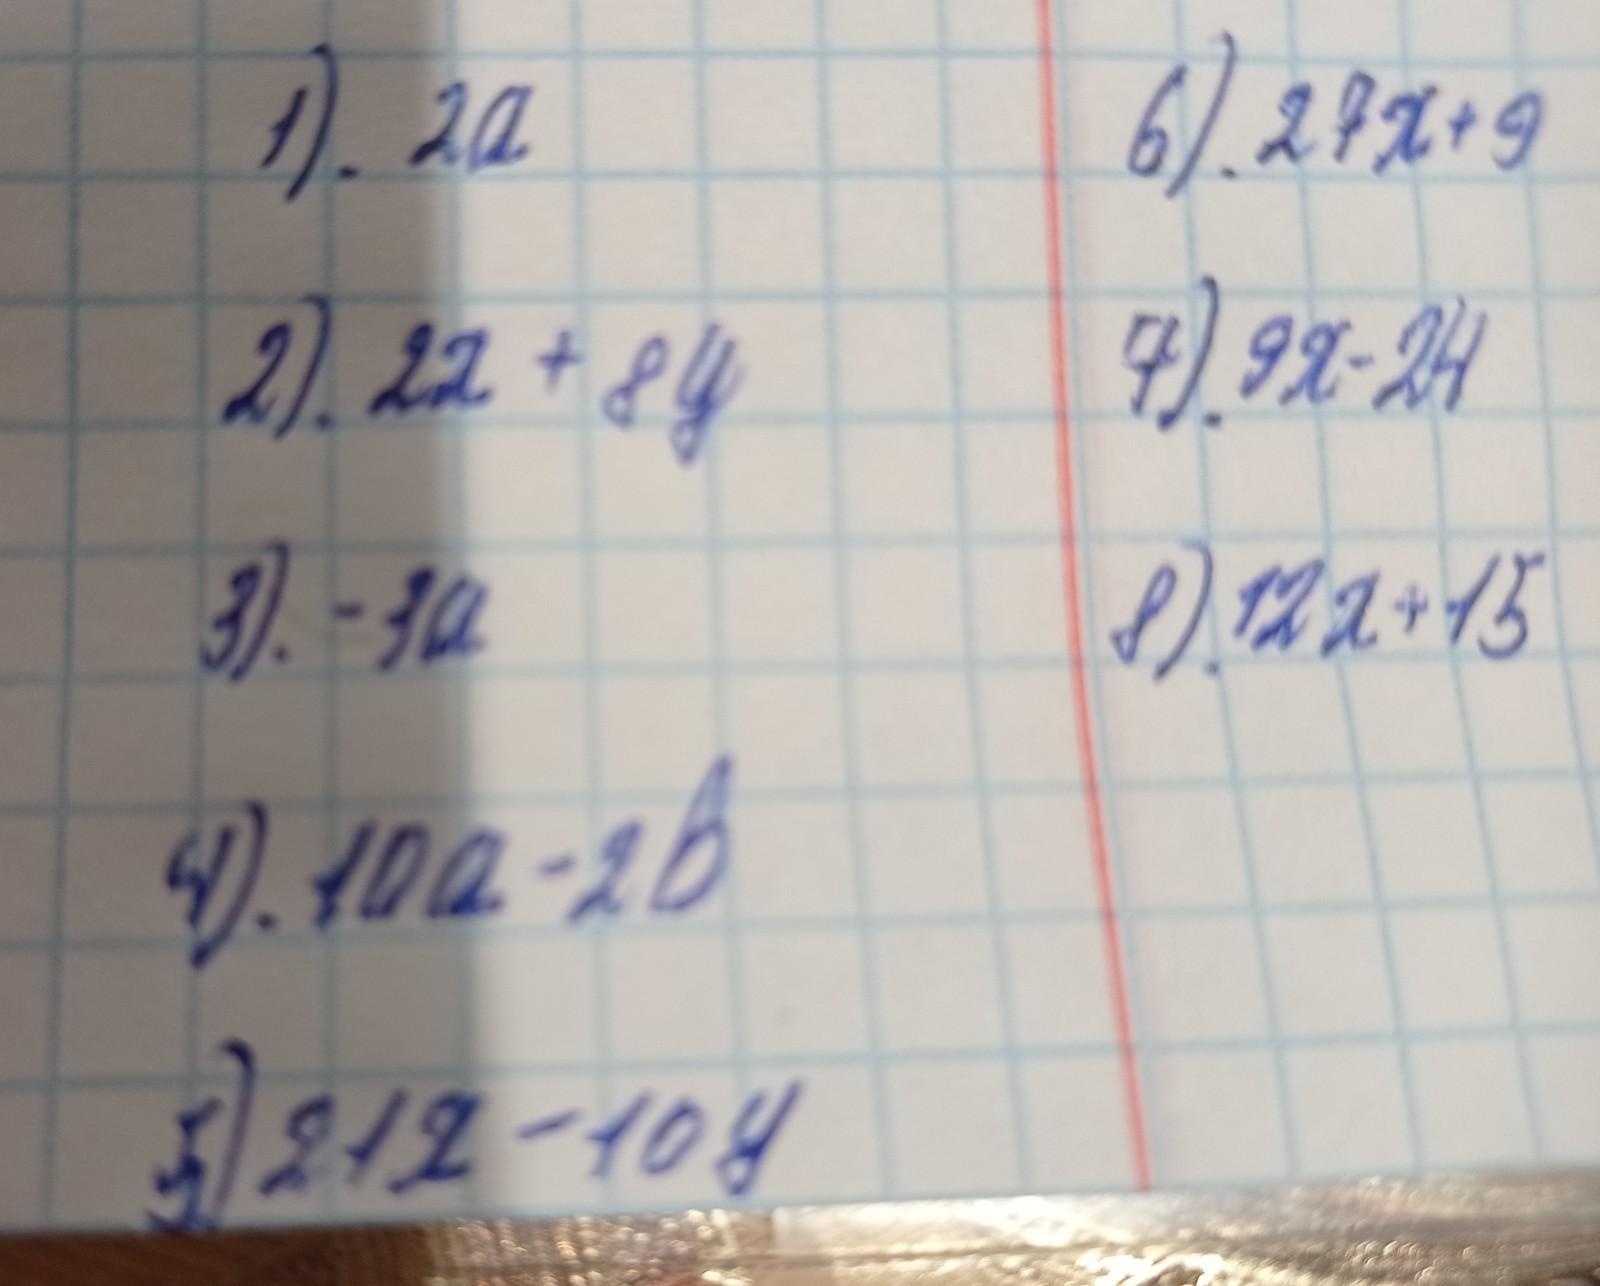 1). 2a
2). 2x + 8y
3). -3a
4). 10a - 2b
5) 21x - 10y
6). 27x + 9
7). 9x - 24
8). 12x + 15